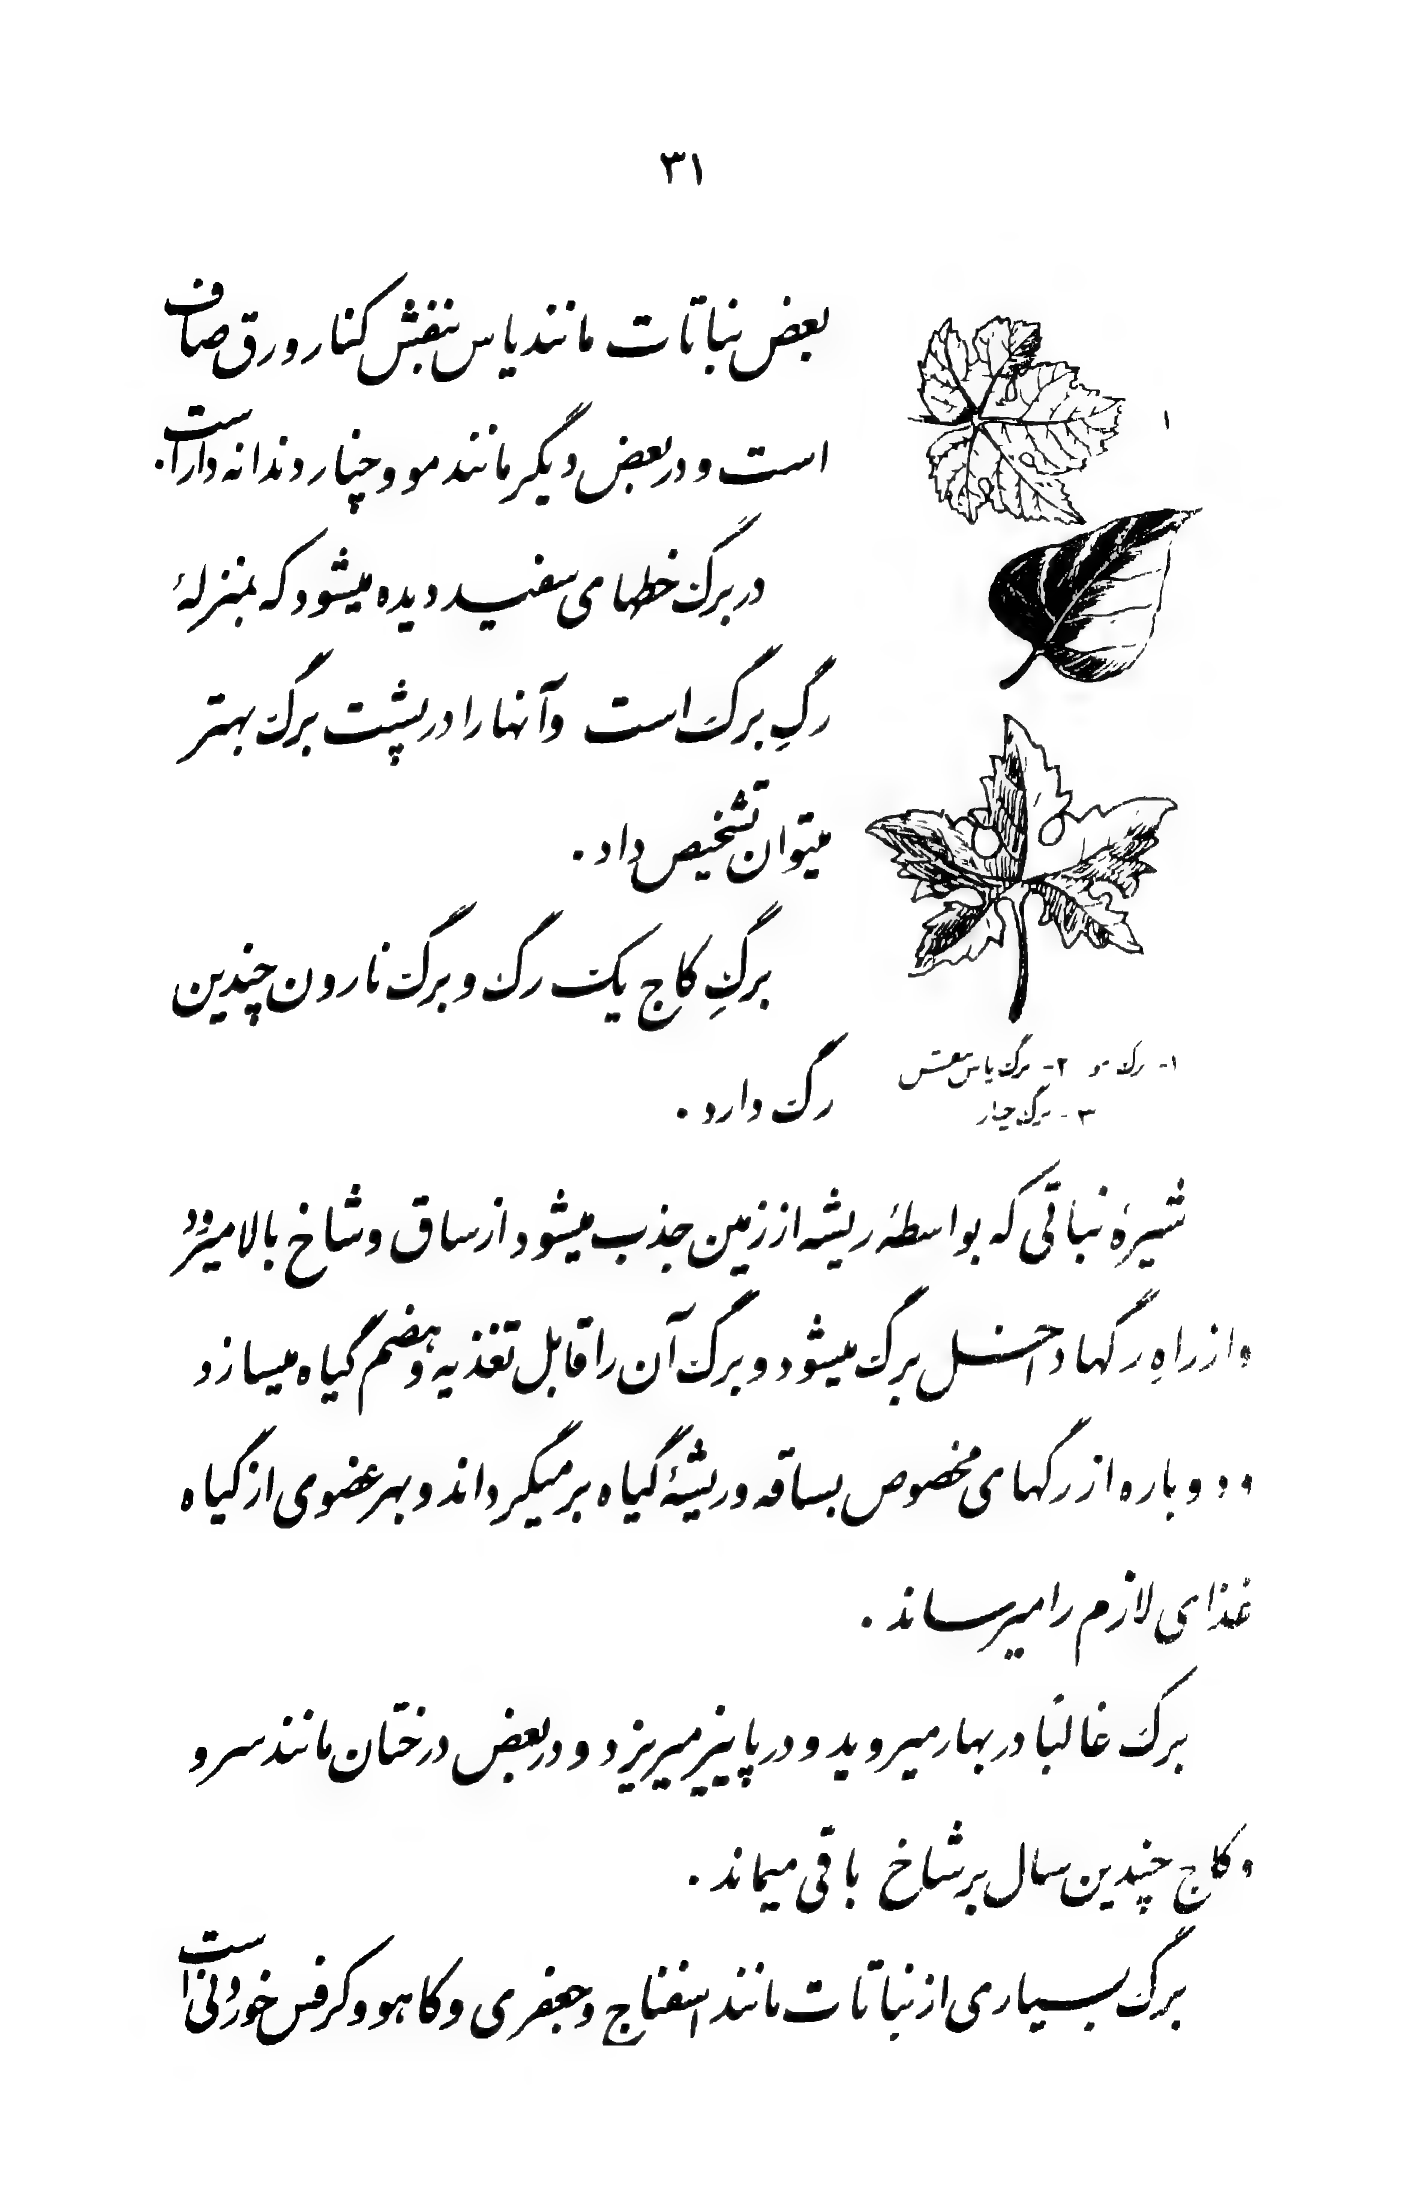 ۳۱
بعض نباتات مانند یاس بنفش کنار ورق صاف
است و در بعض دیگر مانند مو و چنار دندانه دار است.
در برگ خطهای سفید دیده میشود که بمنزلهٔ
رگِ برگ است و آنها را در پشت برگ بهتر
میتوان تشخیص داد.
برگِ کاج یک رگ و برگ نارون چندین
رگ دارد.
۱
۱- برگ مو ۲- برگ یاس بنفش
۳- برگ چنار
شیرهٔ نباتی که بواسطهٔ ریشه از زمین جذب میشود از ساق و شاخ بالا میرود
و از راهِ رگها داخل برگ میشود و برگ آن را قابل تغذیه و هضم گیاه میسازد
و دوباره از رگهای مخصوص بساقه و ریشهٔ گیاه برمیگرداند و بهر عضوی از گیاه
غذای لازم را میرساند.
برگ غالبًا در بهار میروید و در پاییز میریزد و در بعض درختان مانند سرو
و کاج چندین سال بر شاخ باقی میماند.
برگ بسیاری از نباتات مانند اسفناج و جعفری و کاهو و کرفس خوردنی است